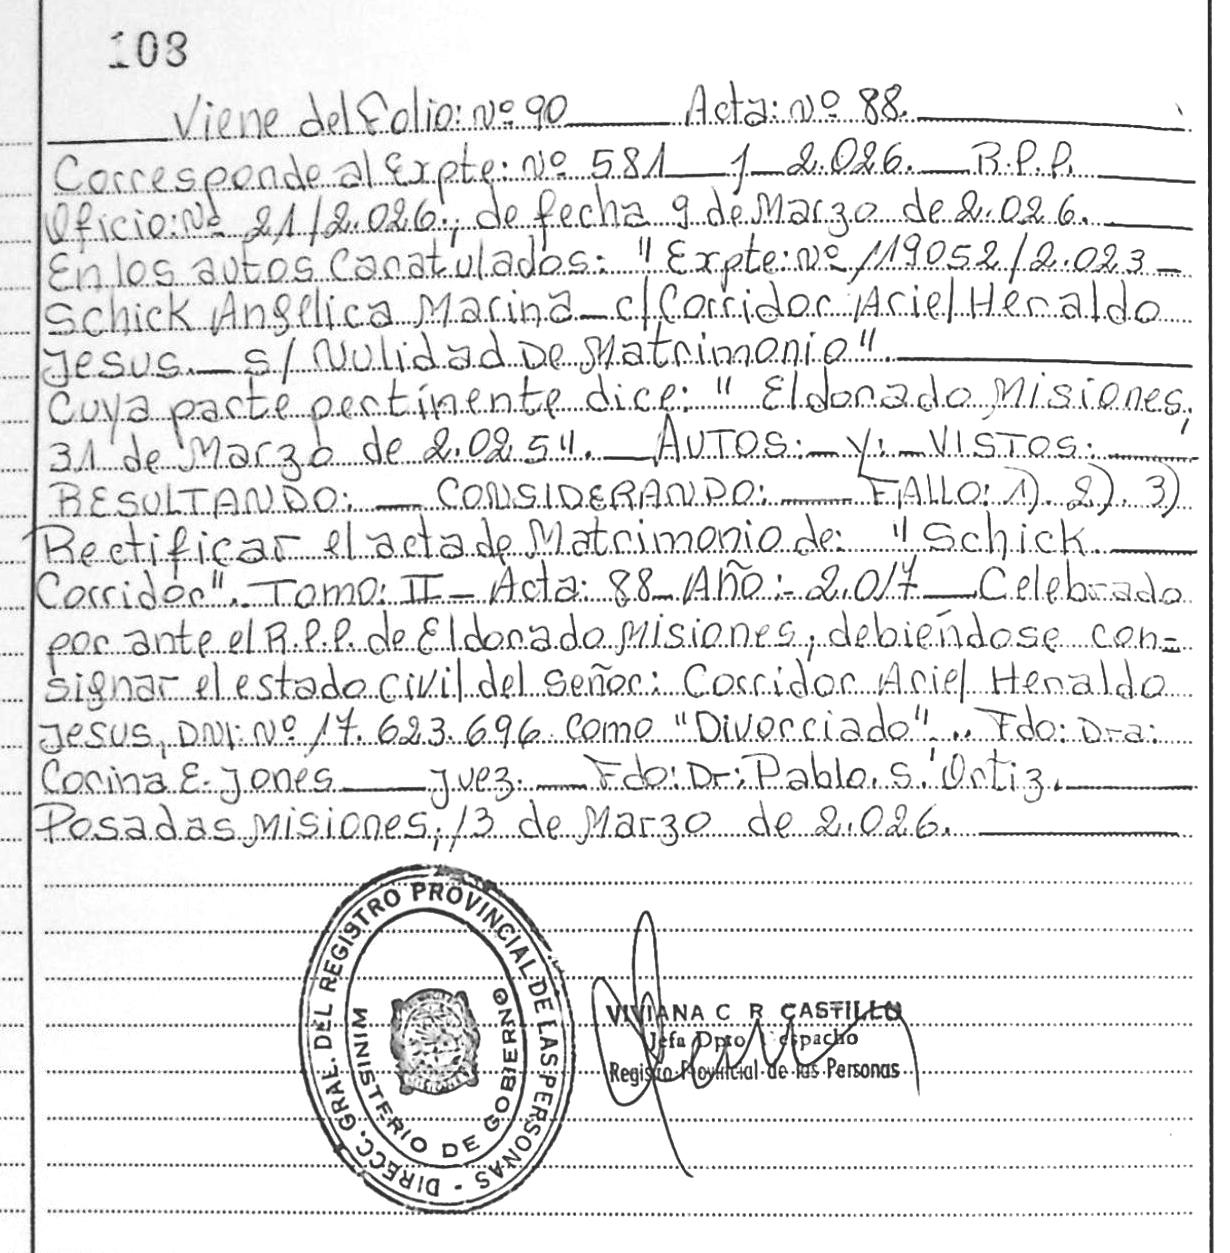 103
Viene del Folio: Nº 90 Acta: Nº 88.
Corresponde al Expte: Nº 581 / 2.026. R.P.P.
Oficio: Nº 21/2.026., de fecha 9 de Marzo de 2.026.
En los autos Caratulados: "Expte: Nº 119052/2.023 -
Schick Angelica Marina c/ Corridor Ariel Heraldo
Jesus. s/ Nulidad De Matrimonio".
Cuya parte pertinente dice: " Eldorado, Misiones,
31 de Marzo de 2.025". AUTOS: Y: VISTOS:
RESULTANDO: CONSIDERANDO: FALLO: 1). 2). 3)
Rectificar el acta de Matrimonio de: "Schick
Corridor". Tomo: II - Acta: 88 - Año: - 2.017 Celebrado
por ante el R.P.P. de Eldorado, Misiones, debiéndose con=
signar el estado civil del Señor: Corridor Ariel Heraldo
Jesus, DNI: Nº 17.623.696 como "Divorciado".. Fdo: Dra:
Corina E. Jones Juez. Fdo: Dr: Pablo. S. Ortiz.
Posadas Misiones, 13 de Marzo de 2.026.
DIRECC. GRAL. DEL REGISTRO PROVINCIAL DE LAS PERSONAS -
MINISTERIO DE GOBIERNO
MISIONES
VIVIANA C R CASTILLO
Jefa Dpto Despacho
Registro Provincial de las Personas